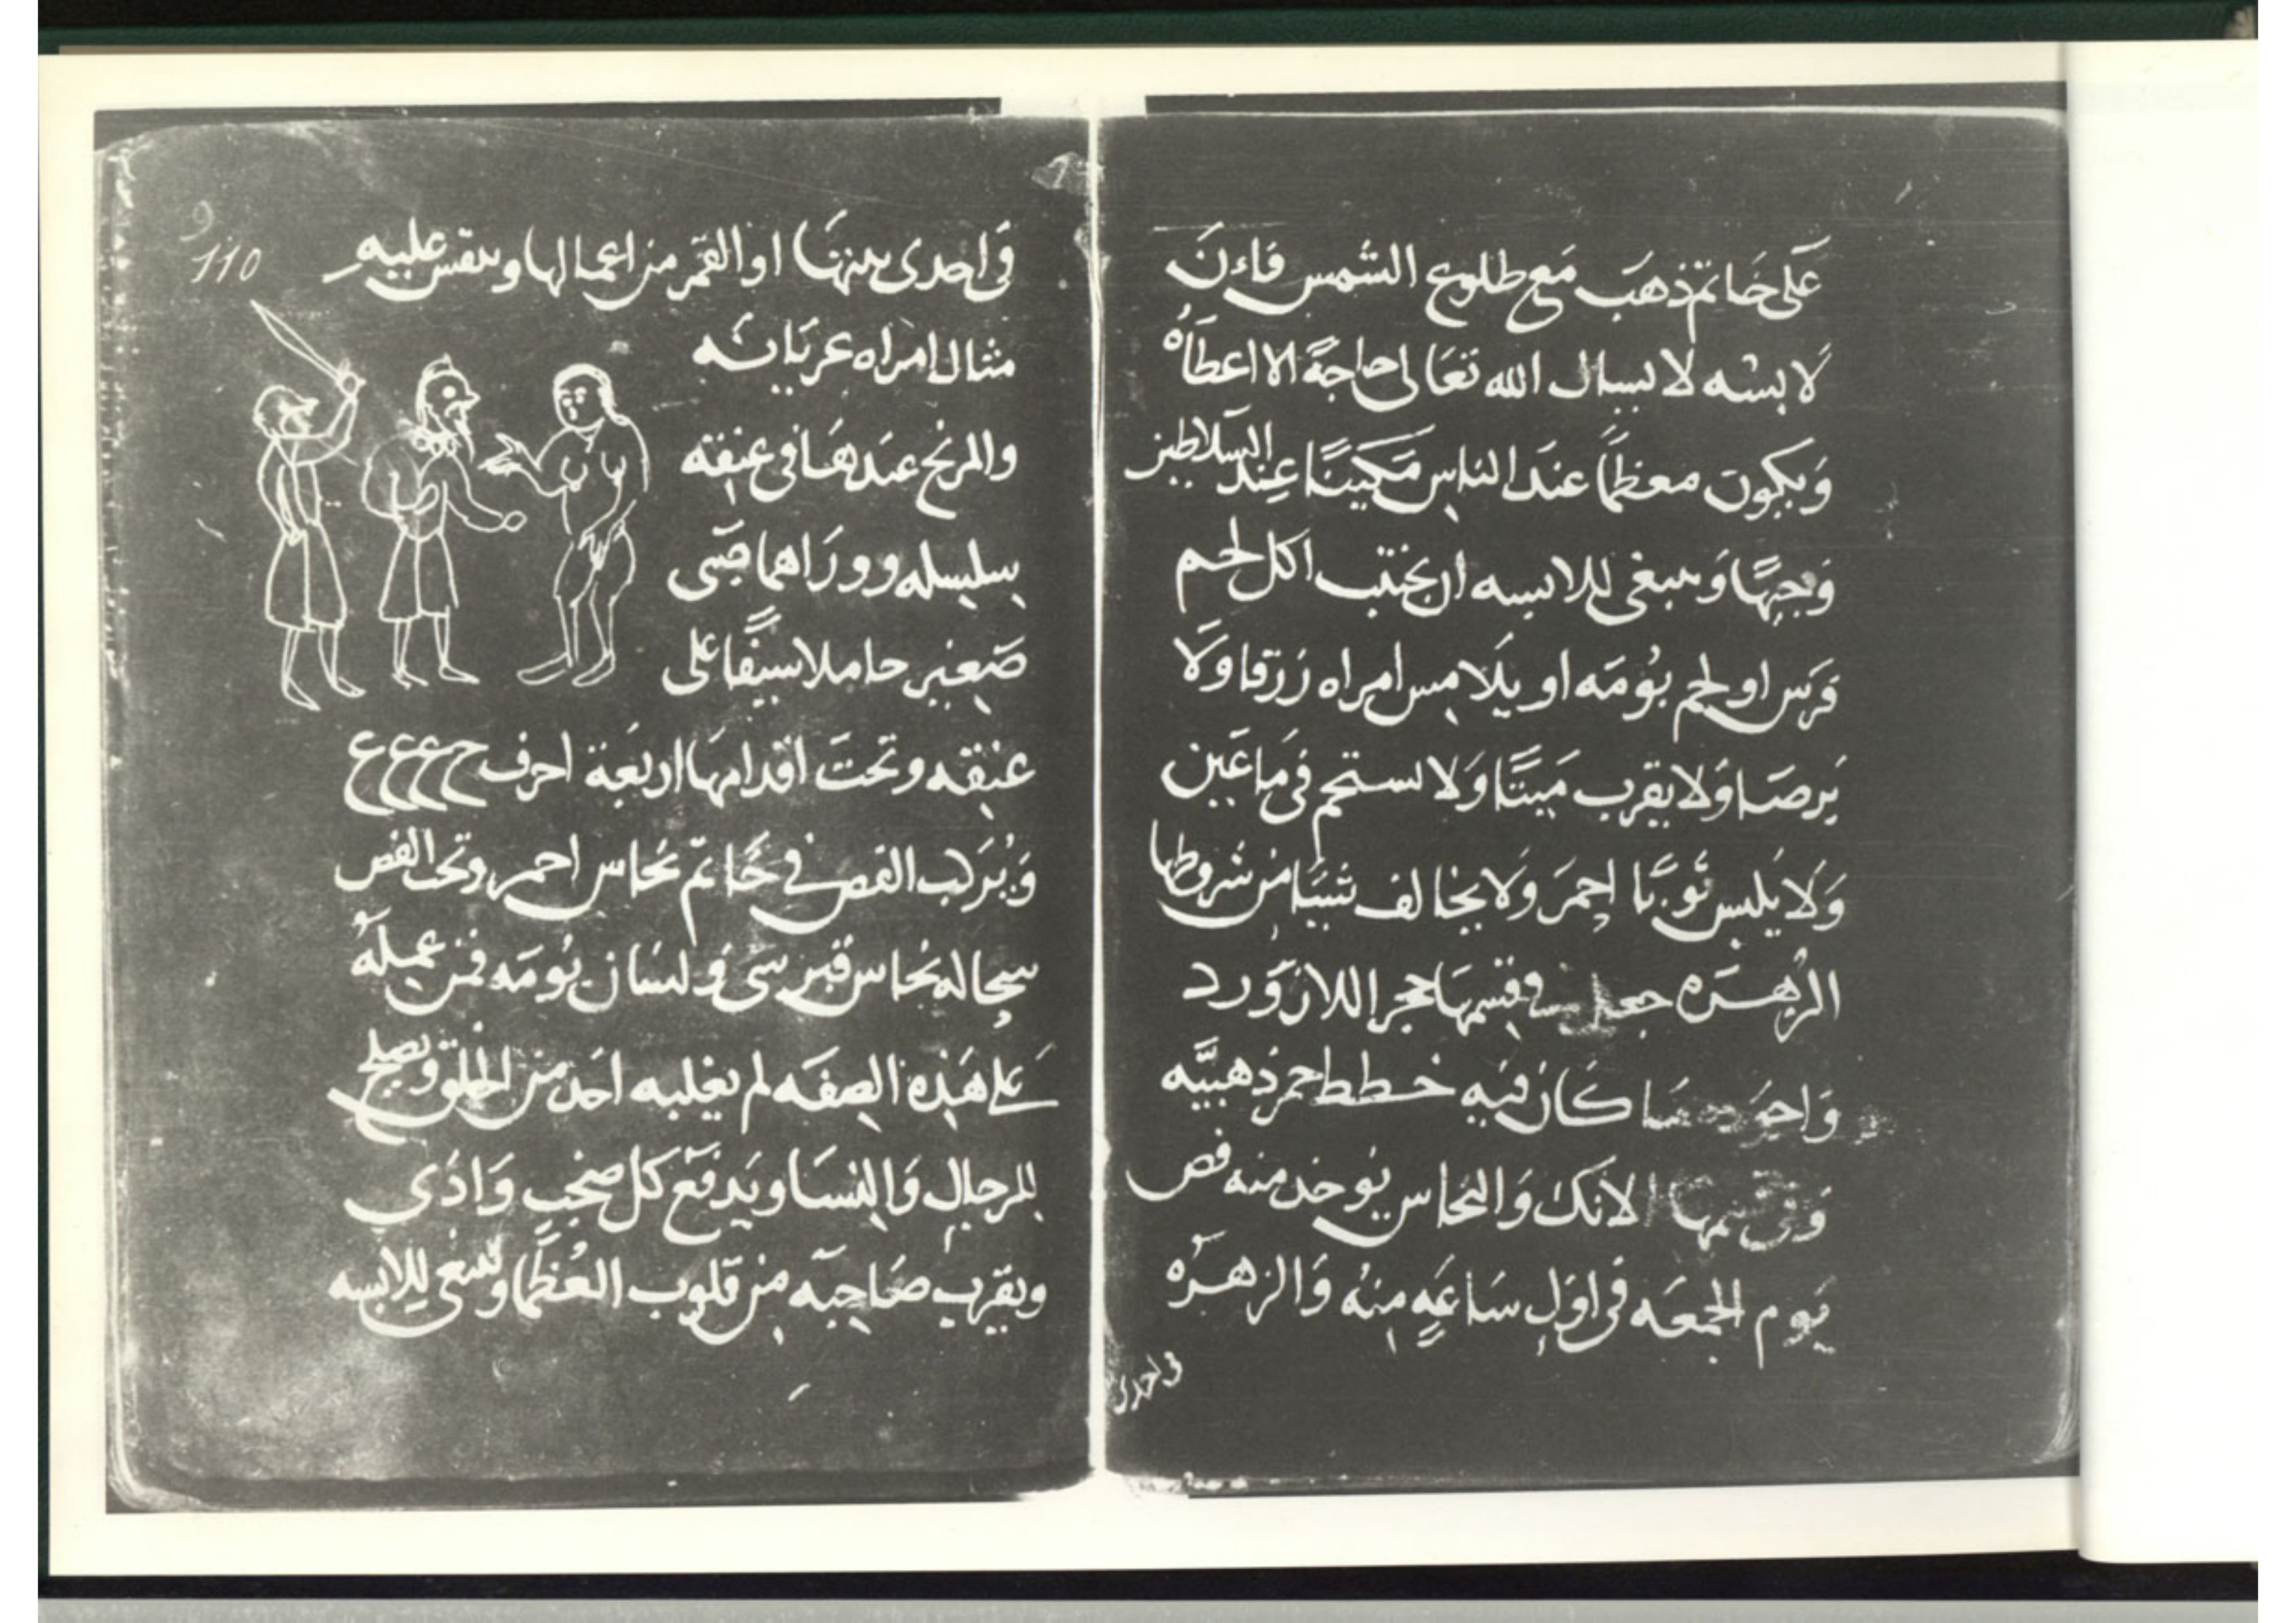 عَلى خَاتم ذهَب مَع طلوع الشمس فاءنَ
لَابسه لا يسال الله تعَالى حاجةً الا اعطَاهُ
وَيكون معظمًا عندَ الناسِ مَكينًا عِند السلاطين
وَجيهًا وَينبغى للابسه ان يجتنب اكل لحم
فرَس او لحم بُومَه او يلَامس امراه زرقا وَلَا
بَرصَا وَلا يقرب مَيتًا وَلا يستحم فى مَا عَين
وَلَا يلبس ثَوبًا احمرَ وَلا يخالف شيَا من شروطها
الزهرَه جعل فى قسمها حجر اللازوَرد
وَاجود مَا كَان فيه خطط حمر ذهبيَّه
وَفى قسمها الانك وَالنحاس يوخذ منه فص
يَوم الجمعَه فى اوَلِ سَاعَهٍ مِنهُ وَالزهرَه
فى احدى
9
110
فى احدى بيتهَا او القمَر من اعمالها وينقش عليه
مثال امراه عريَانَه
والمريخ عندهَا فى عنقه
سلسله وورَاهما صَبى
صَغير حاملا سيفًا على
عنقه وتحتَ اقدامهَا اربعَة احرف ح ع ع ع ع
وَيُرَكب الفص فى خَاتم نحاس احمر وتحت الفص
سحاله نحاس قبرسى وَلسَان بُومَه فمن عَملَهُ
عَلى هَذه الصفَه لم يغلبه احَد من الخلق وَيصلح
للرجالِ وَالنسَا وَيَدفَع كل صخبٍ وَاذَى
ويقرب صَاحبَه من قلوب العُظَمَا وَينبغى للابسه